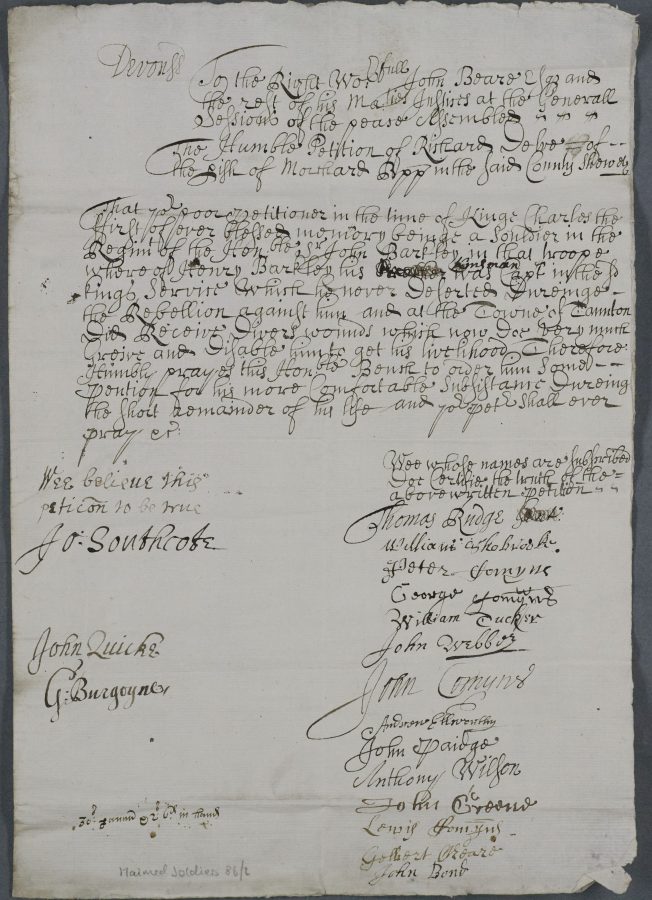 Devonss
To the Right Worpfull John Beare Esqr and
the rest of his Maties Justices at the Generall
Sessions of the peace Assembled
The Humble Petition of Richard of
the pish of Morchard Bpp in the said County Sheweth
That yor poor petitioner in the time of Kinge Charles the
first of ever blessed memory beinge a Souldier in the
Regimt of the Honble Sr John Barkley in that troope
where of Henry Barkley his kinsman was Capt in the sd
kings Service Which he never Deserted Dureinge
the Rebellion against him and at the Towne of Taunton
Did Receive Divers wounds which now Doe Very much
Greive and Disable him to get his livelihood Therefore
Humbly prayes this Honble Bench to order him Some
pention for his more Comfortable Subsistance Dureing
the short remainder of his life and yor petr shall ever
pray &c:
Wee believe this
peticon to be true
Jo: Southcote
John Quicke
G: Burgoyne
Wee whose names are subscribed
Doe Certifie the truth of the
above written petition
Thomas Rudge
William
Peter Comyns
George Comyns
William Tucker
John Webber
John Comyns
Andrew Elworthy
John Paidge
Anthony Wilson
John Greene
Lewis Comyns
Gilbert
John Bond
in hand
Maimed Soldiers 86/2